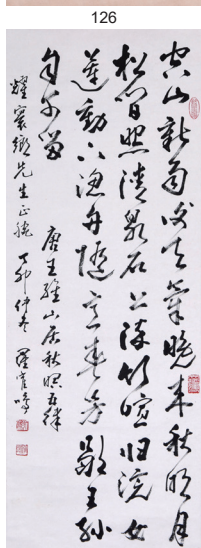 126
空山新雨後天氣晚來秋明月
松間照清泉石上流竹喧归浣女
蓮動下漁舟隨意春芳歇王孫
自可留
唐王維山居秋暝五律
耀寰鄉先生正
丁卯仲冬